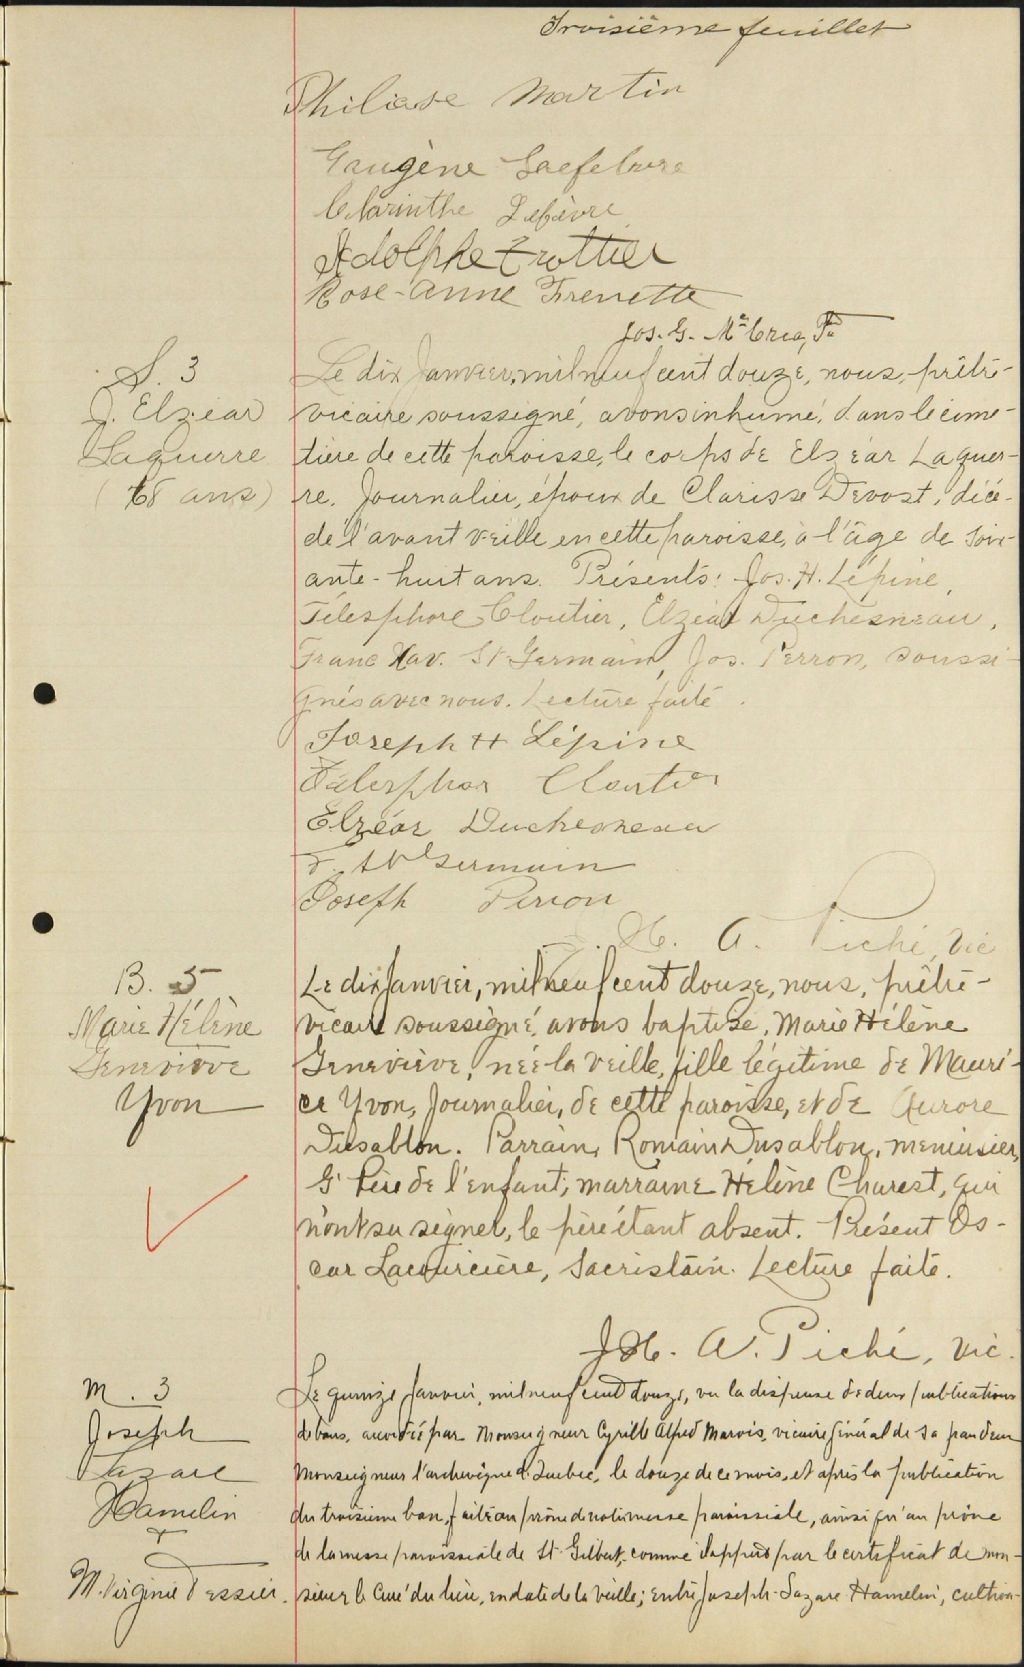 Troisième feuillet
Philiase Martin
Eaugène Laefebvre
Clarinthe Lefèvre
Adolphe Trottier
Rose-Anne Frenette
Jos. G. McCrea, Ptre
S. 3
J. Elzéar
Laguerre
(68 ans)
Le dix Janvier, mil neuf cent douze, nous, prêtre-
vicaire soussigné, avons inhumé, dans le cime-
tière de cette paroisse, le corps de Elzéar Laguer-
re, Journalier, époux de Clarisse Devost, décé-
dé l'avant veille en cette paroisse, à l'âge de soix-
ante-huit ans. Présents: Jos. H. Lépine,
Télesphore Cloutier, Elzéar Duchesneau,
Franc Xav. St Germain, Jos. Perron, soussi-
gnés avec nous. Lecture faite.
Joseph H Lépine
Télesphor Cloutier
Elzéar Duchesneau
F. St Germain
Joseph Perron
J. H. A. Piché, Vic
B. 5
Marie Hélène
Geneviève
Yvon
Le dix Janvier, mil neuf cent douze, nous, prêtre-
vicaire soussigné, avons baptisé, Marie Hélène
Geneviève, née la veille, fille légitime de Mauri-
ce Yvon, Journalier, de cette paroisse, et de Aurore
Dusablon. Parrain, Romain Dusablon, menuisier,
G' Père de l'enfant; marraine Hélène Charest, qui
n'ont su signer, le père étant absent. Présent Os-
car Lacourcière, Sacristain. Lecture faite.
J. H. A. Piché, Vic.
M. 3
Joseph
Lazare
Hamelin
+
M. Virginie Tessier.
Le quinze Janvier, mil neuf cent douze, vu la dispense de deux publications
de bans, accordée par Monseigneur Cyrille Alfred Marois, vicaire général de Sa grandeur
Monseigneur l'archevêque de Québec, le douze de ce mois, et après la publication
du troisième ban, faite au prône de notre messe paroissiale, ainsi qu'au prône
de la messe paroissiale de St. Gilbert, comme il appert par le certificat de mon-
sieur le Curé du lieu, en date de la veille; entre Joseph-Lazare Hamelin, cultiva-